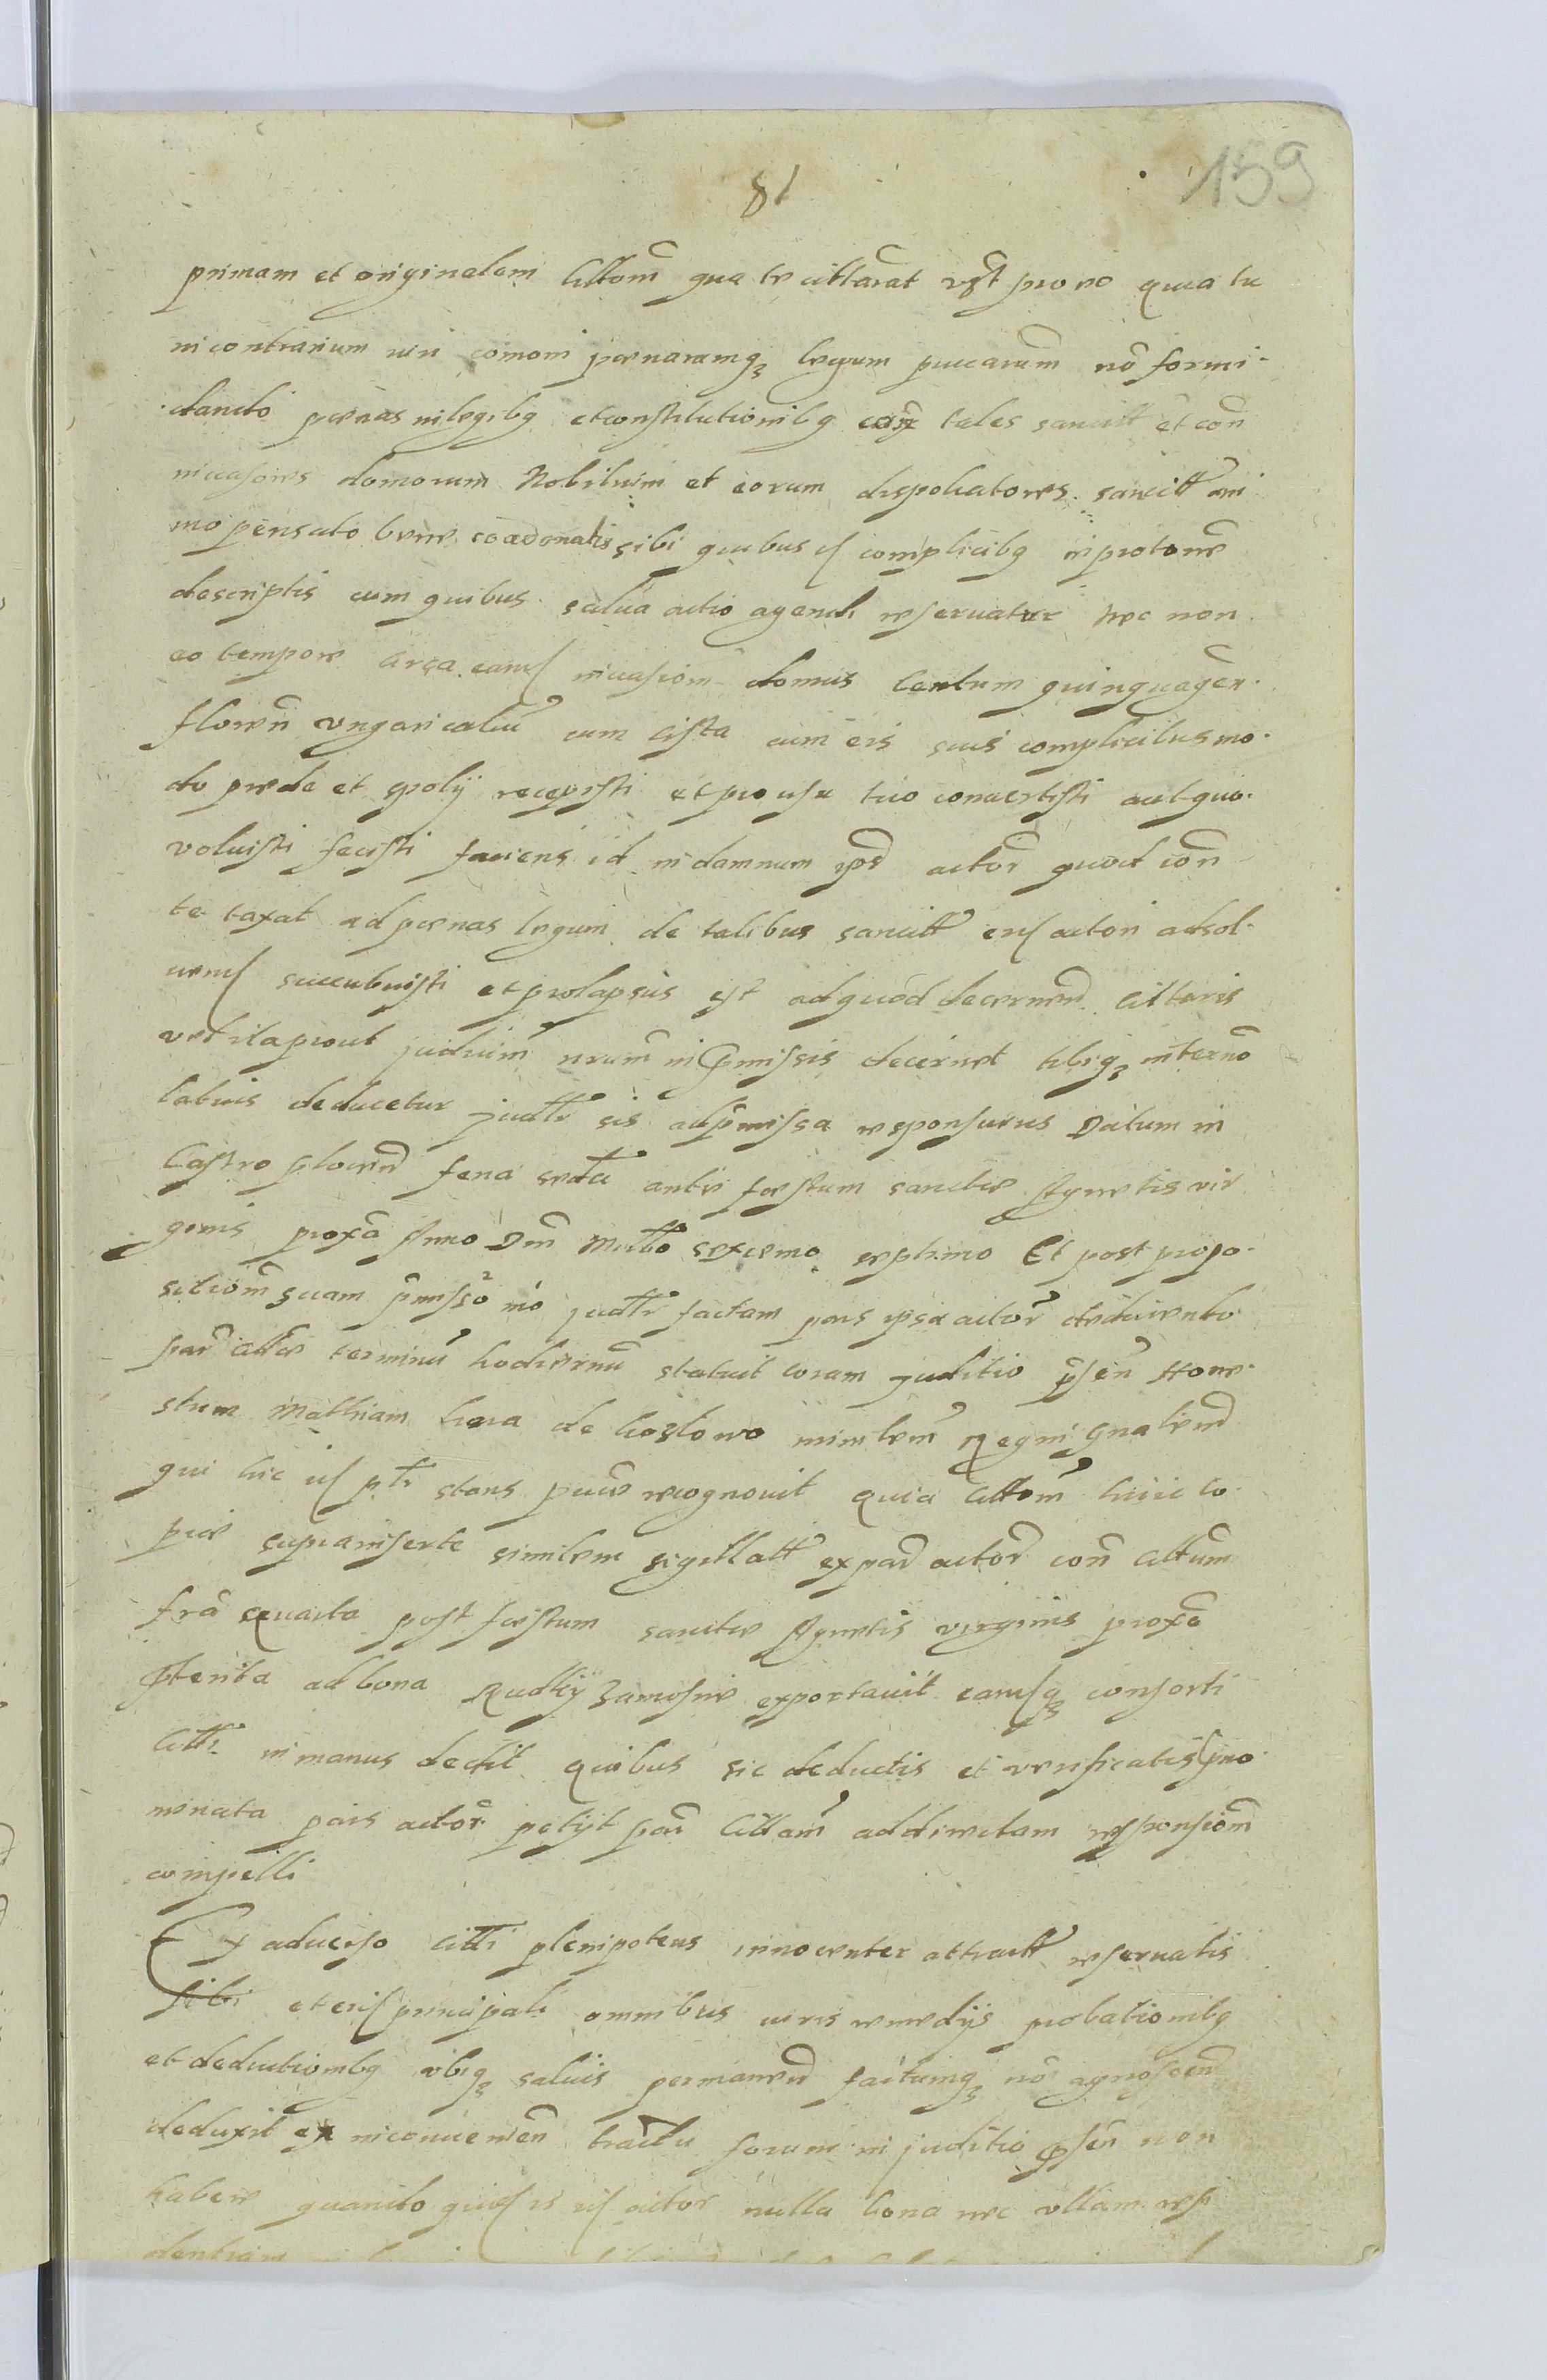 81
159
primam et originalem citt̃om̃ qua te cittarat videt pro eo quia tu
in contrarium juri comõni pœnarumq₃ legum paccarum̃ nõ formi-
dando pœnas in legibq et constitutionibq cont̃ tales sancitt̃ et con̄
invasores domorum Nobilium et eorum dispoliatores sancitt̃ ani
mo pensato bene coadonatis sibi quibusd̃ complicibq in protone
descriptis cum quibus salua actio agendi reservatur nec non
eo tempore circa eand̃ invasiom̃ domus Centum quinquagen
floren̄ ungaricaliũ cum cista cum eis suis complicibus mo-
do prede et spolÿ recepisti et pro usu tuo convertisti aut quo
voluisti fecisti faciens id in damnum ips̃ actor̃ quod con̄
te taxat ad pœnas legum de talibus sancitt̃ eid̃ actori absol-
vend̃ succubuisti et prolapsus est ad quod decernend̃ cittaris
vel ita prout judicium̃ nrum̃ in p̃missis decernet tibiq₃ in termõ
latius deducetur judtr̃ sis ad p̃missa responsurus Datum in
Castro plocen̄ feria sexta ante festum sanctæ Agnetis vir
ginis proxã Anno Dni Millo sexcemo septimo Et post propo-
sitiom̃ suam p̃misso mõ judtr̃ factam pars ipsa actor̃ deducendo
par̃ citte terminũ hodiernũ statuit coram juditio p̃sen̄ Hone-
stum Mathiam Kara de Kozlowo ministem̃ Regni Gnalem̃
qui hic jud̃ ptr̃ stans pub̃ce recognovit quia cittom̃ huic co-
piæ suprainserte similem sigillatt̃ ex par̃ actor̃ con̄ cittum̃
frã quarta post festum sanctæ Agnetis virginis proxã
p̃terita ad bona Rudky Zamosne exportavit eamq₃ consorti
citti in manus dedit quibus sic deductis et verificatis p̃no-
minata pars actor̃ petÿt par̃ Cittam̃ ad directam responsiom̃
compelli
Ex adverso citti plenipotens innocenter attractt̃ reservatis
sibi et eid̃ principali omnibus iuris remedÿs probationibq
et deductionibq ubiq₃ salvis permanen̄ factumq₃ nõ agnoscen̄
deduxit ex inconvenien̄ tractu forum in juditio p̃sen̄ non
habere quando quid̃ is id̃ actor nulla bona nec ullam resi
dentiam